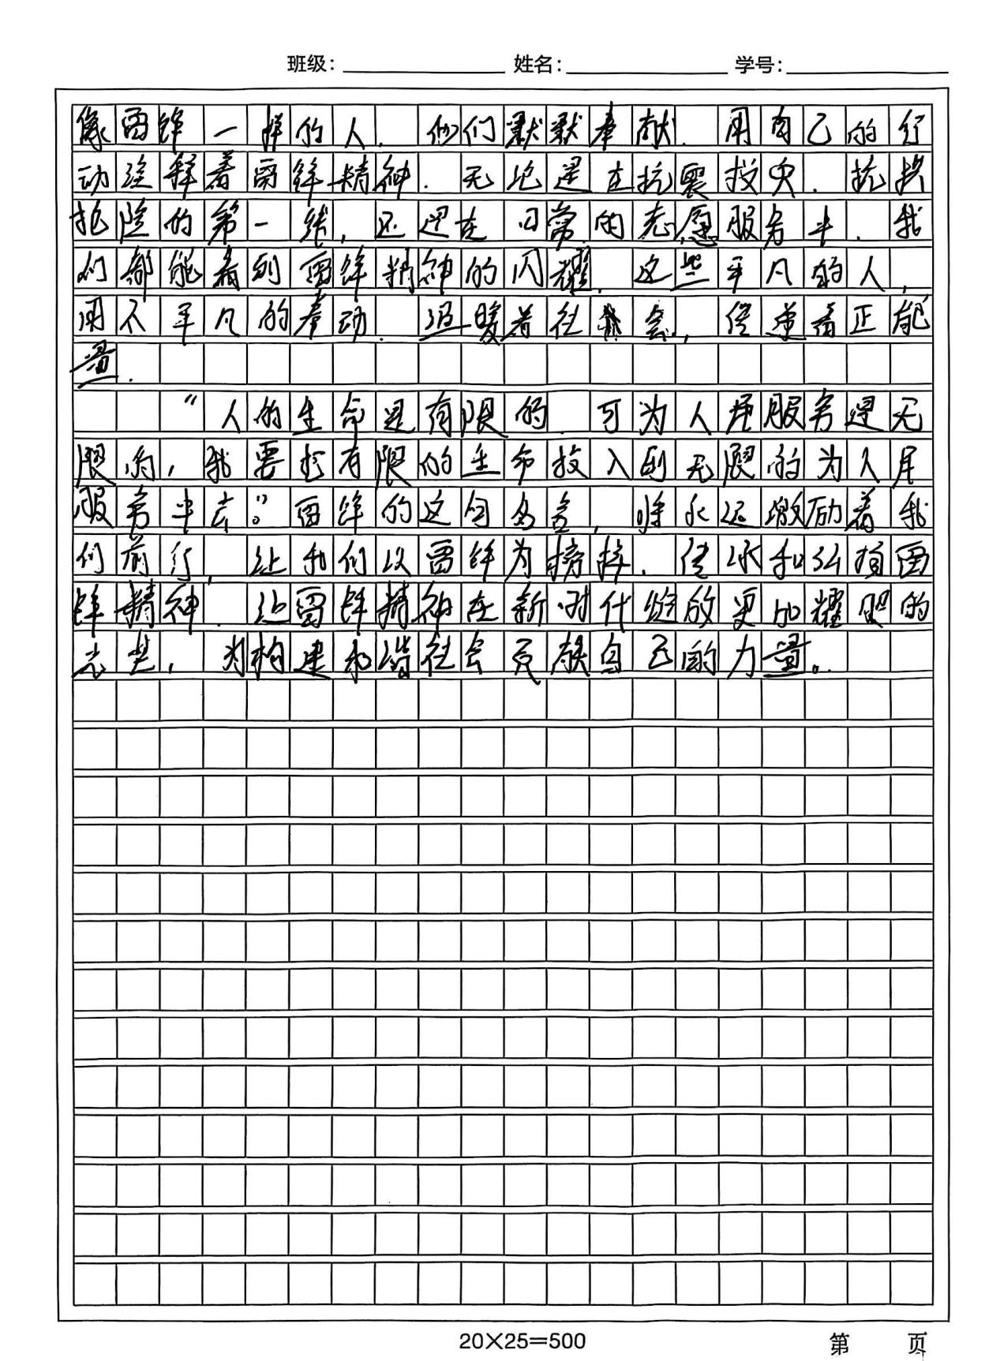 班级：  姓名：  学号：
像雷锋一样的人.他们默默奉献.用自己的行
动诠释着雷锋精神.无论是在抗震救灾.抗洪
抢险的第一线,还是在日常的志愿服务中.我
们都能看到雷锋精神的闪耀.这些平凡的人,
用不平凡的举动.温暖着社会,传递着正能
量.
“人的生命是有限的.可为人民服务是无
限的,我要把有限的生命投入到无限的为人民
服务中去”。雷锋的这句名言,将永远激励着我
们前行,让我们以雷锋为榜样.传承和弘扬雷
锋精神.让雷锋精神在新时代绽放更加耀眼的
光芒,为构建和谐社会贡献自己的力量。
20×25=500  第  页